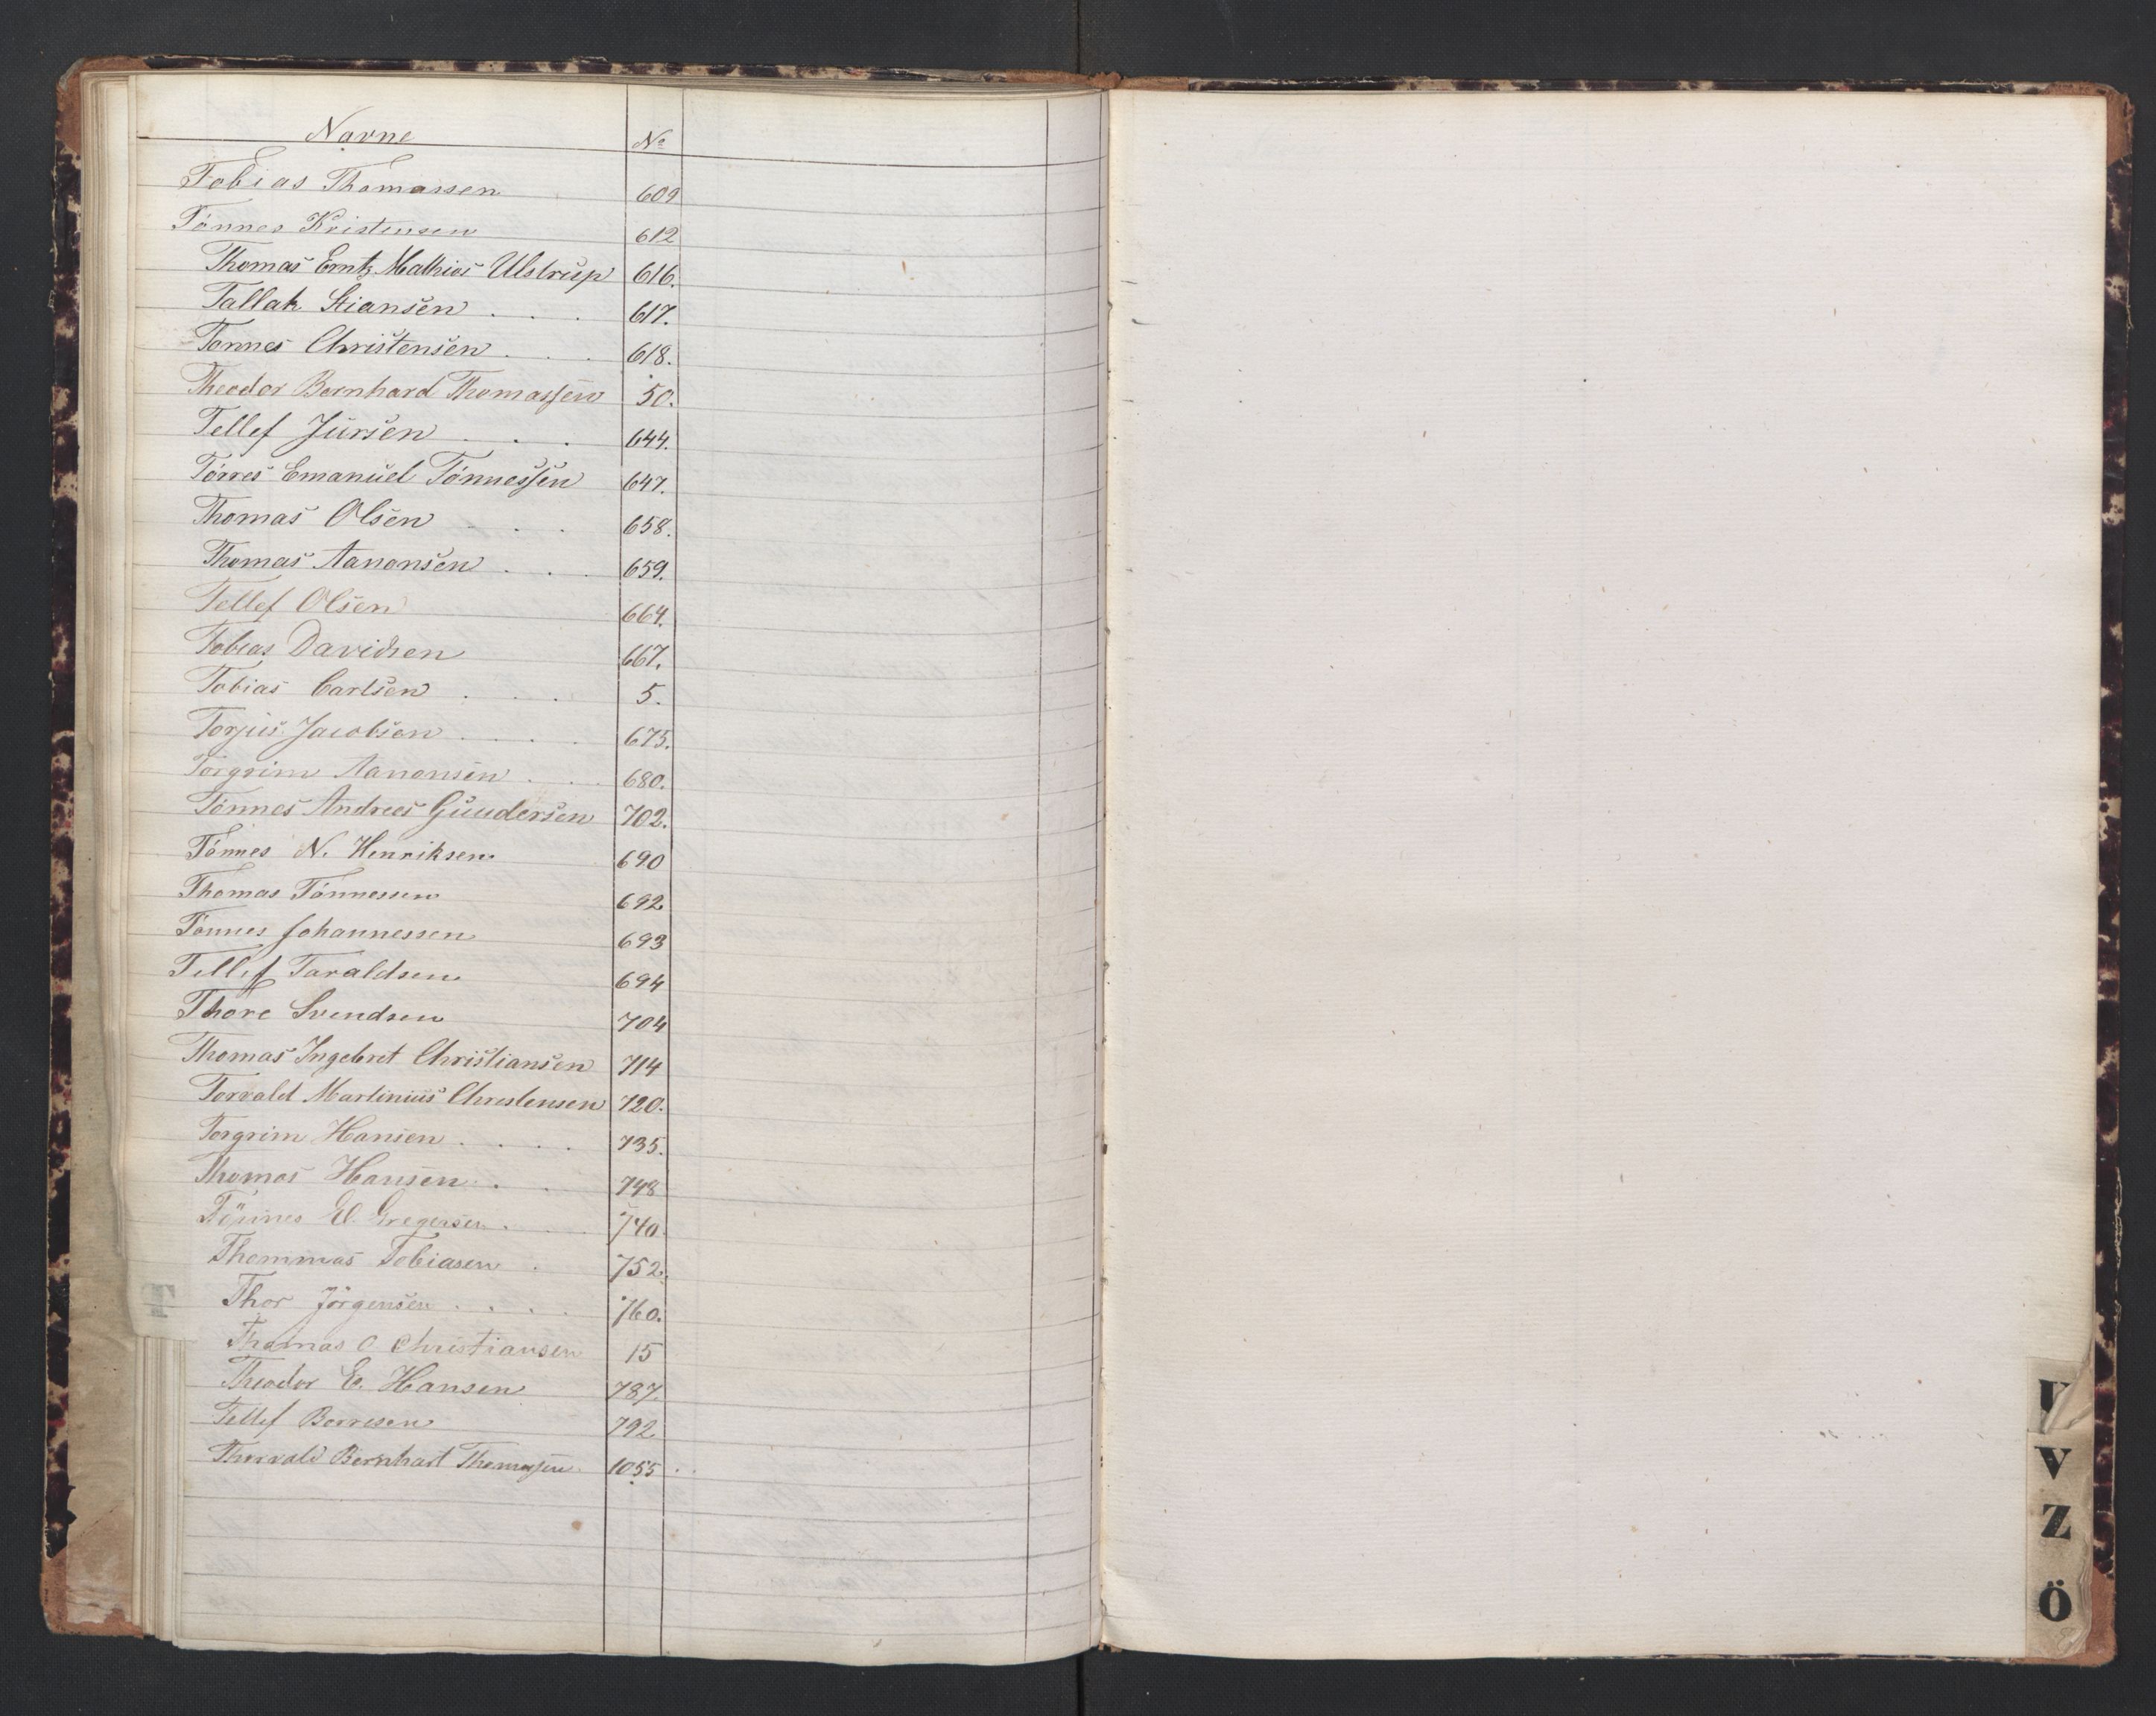 Navne No
Tobias Thomassen 609
Tönnes Kristensen 612
Thomas Erntz Mathias Ulstrup 616.
Tallak Stiansen . . . 617.
Tönnes Christensen . . . 618.
Theodor Bernhard Thomassen 50.
Tellef Jürsen . . . 644.
Törres Emanuel Tönnessen 647.
Thomas Olsen . . . 658.
Thomas Aanonsen . . . 659.
Tellef Olsen 664.
Tobias Davidsen 667.
Tobias Carlsen . . . 5.
Torjus Jacobsen . . . . 675.
Torgrim Aanonsen . . . 680.
Tönnes Andreas Gundersen 702.
Tönnes N. Henriksen 690
Thomas Tönnessen 692
Tönnes Johannessen 693
Tellef Taraldsen 694
Thore Svendsen 704
Thomas Ingebret Christiansen 714
Torvald Martinius Christensen 720.
Torgrim Hansen . . . . 735.
Thomas Hansen . . . 748
Tönnes E. Gregersen . 740.
Thommas Tobiasen . 752.
Thor Jörgensen . . . . 760.
Thomas O Christiansen 15
Theodor E. Hansen 787.
Tellef Borresen 792
Thorvald Bernhart Thomassen 1055
T
U
V
Z
Ö